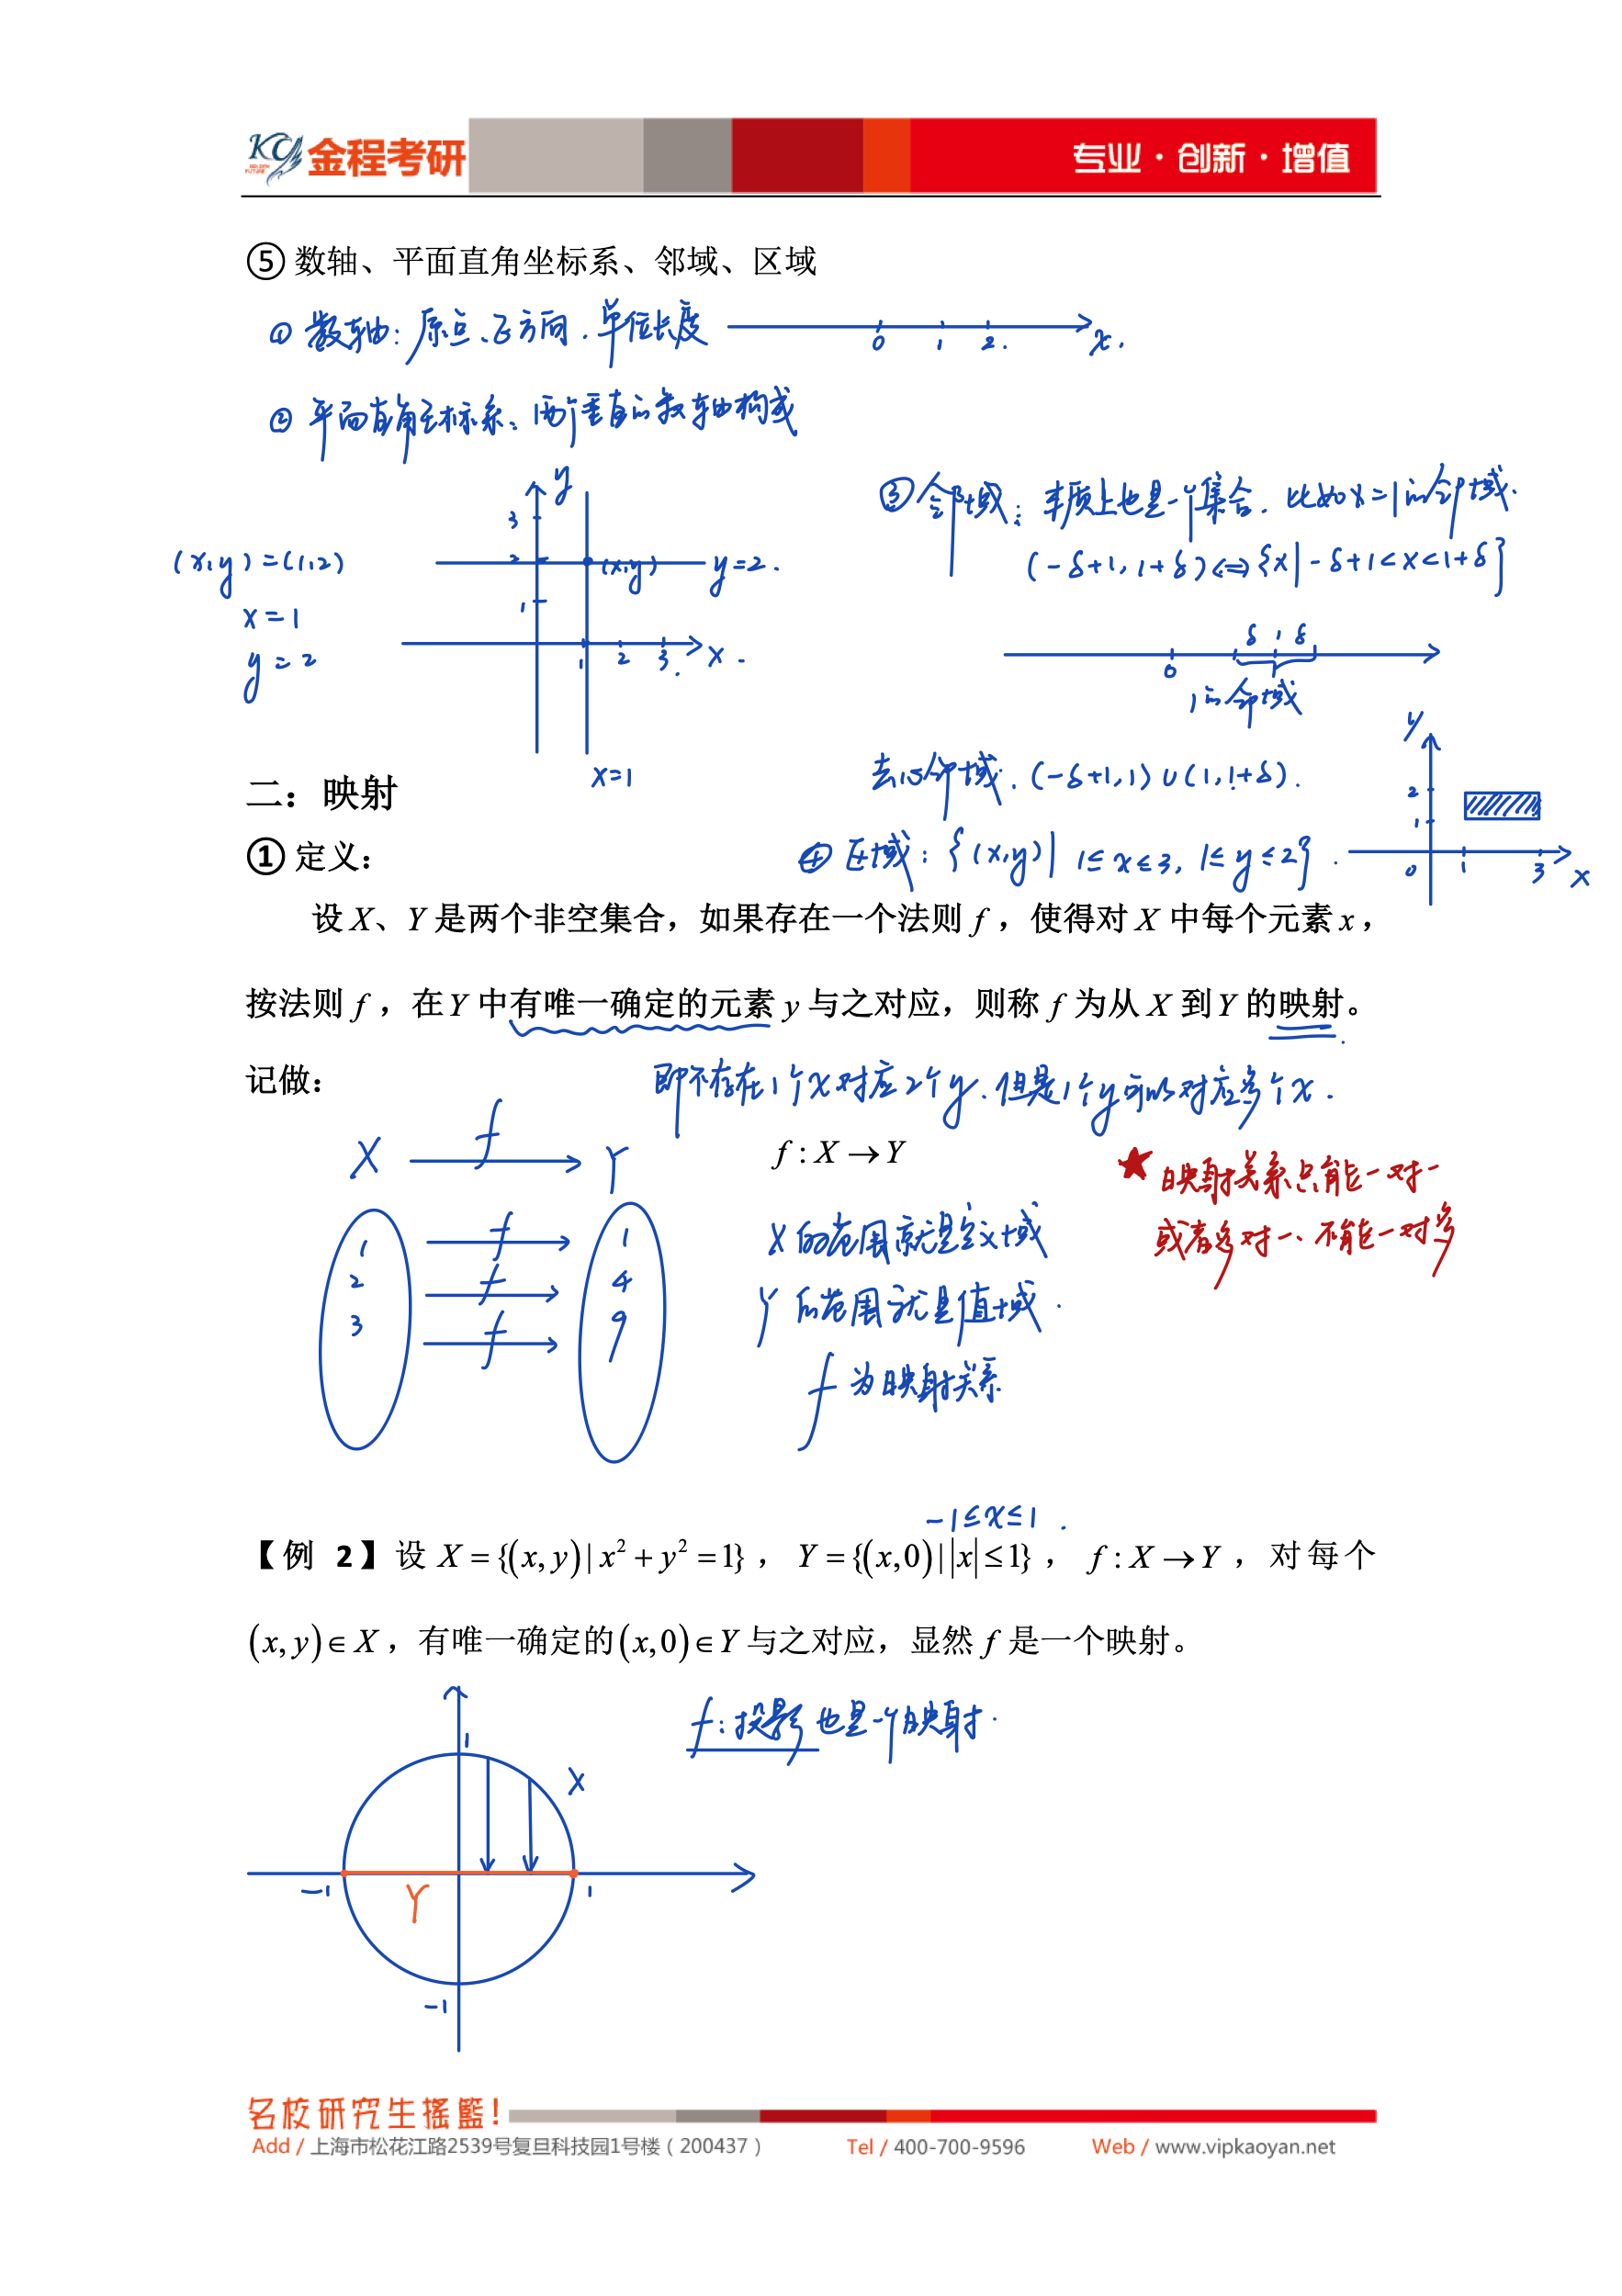 KCy 金程考研
GOLDEN FUTURE
专业·创新·增值
⑤ 数轴、平面直角坐标系、邻域、区域
① 数轴：原点、正方向、单位长度
0 1 2. x.
② 平面直角坐标系、两个垂直的数轴构成
y
3
2
1
(x,y)
y=2.
1 2 3. x.
x=1
(x,y)=(1,2)
x=1
y=2
③ 邻域：本质上也是一个集合. 比如x=1的邻域.
(-δ+1, 1+δ) ⇔ {x| -δ+1<x<1+δ}
δ 1 δ
0
1的邻域
去心邻域. (-δ+1,1)∪(1,1+δ).
④ 区域：{(x,y)| 1≤x≤3, 1≤y≤2}.
y
2
1
0 1 3 x
二：映射
① 定义：
设 X、Y 是两个非空集合，如果存在一个法则 f ，使得对 X 中每个元素 x ，
按法则 f ，在 Y 中有唯一确定的元素 y 与之对应，则称 f 为从 X 到 Y 的映射。
记做：
即不存在1个x对应2个y. 但是1个y可以对应多个x.
f : X → Y
X f Y
1 f 1
2 f 4
3 f 9
X的范围就是定义域
Y的范围就是值域.
f 为映射关系.
★ 映射关系只能一对一
或者多对一、不能一对多
-1≤x≤1.
【例 2】设 X = {(x, y) | x² + y² = 1} ， Y = {(x,0) | |x| ≤ 1} ， f : X → Y ，对每个
(x, y) ∈ X ，有唯一确定的 (x,0) ∈ Y 与之对应，显然 f 是一个映射。
f：投影也是一个映射.
1
X
-1 Y 1
-1
名校研究生摇篮！
Add / 上海市松花江路2539号复旦科技园1号楼（200437） Tel / 400-700-9596 Web / www.vipkaoyan.net